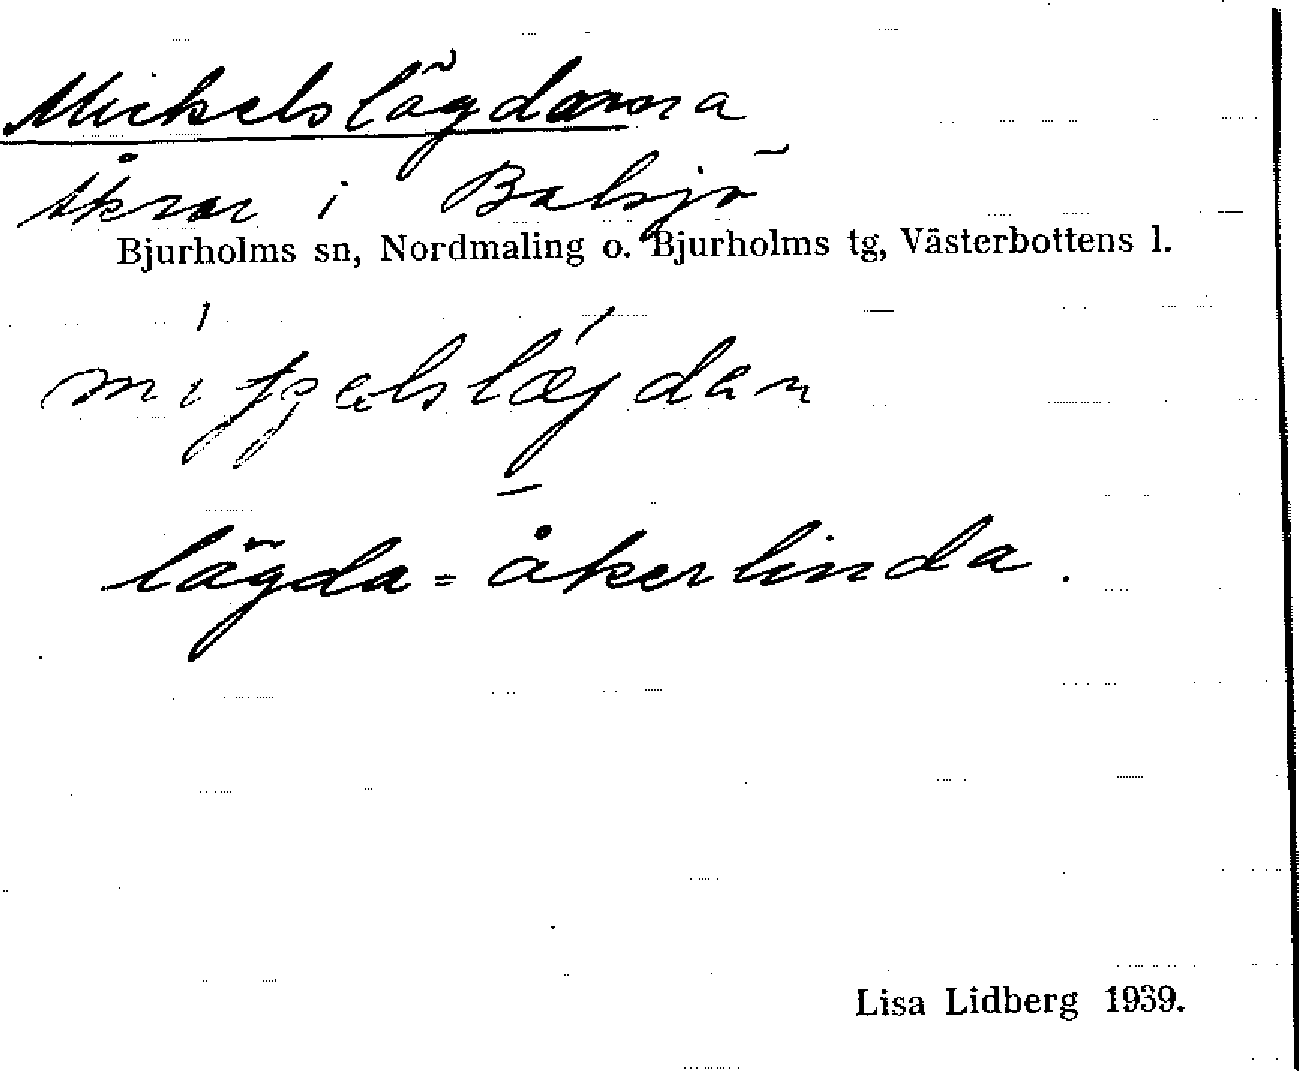 Mickelslägdorna
Åkrar i Balsjö
Bjurholms sn, Nordmaling o. Bjurholms tg, Västerbottens l.
lägda = åkerlinda.
Lisa Lidberg 1939.